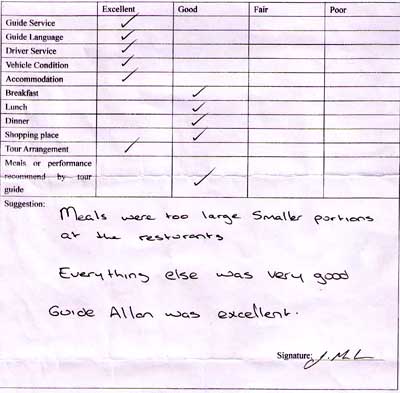 Excellent Good Fair Poor
Guide Service ✓
Guide Language ✓
Driver Service ✓
Vehicle Condition ✓
Accommodation ✓
Breakfast ✓
Lunch ✓
Dinner ✓
Shopping place ✓
Tour Arrangement ✓
Meals or performance
recommend by tour
guide ✓
Suggestion:
Meals were too large Smaller portions
at the resturants
Everything else was very good
Guide Allan was excellent.
Signature: